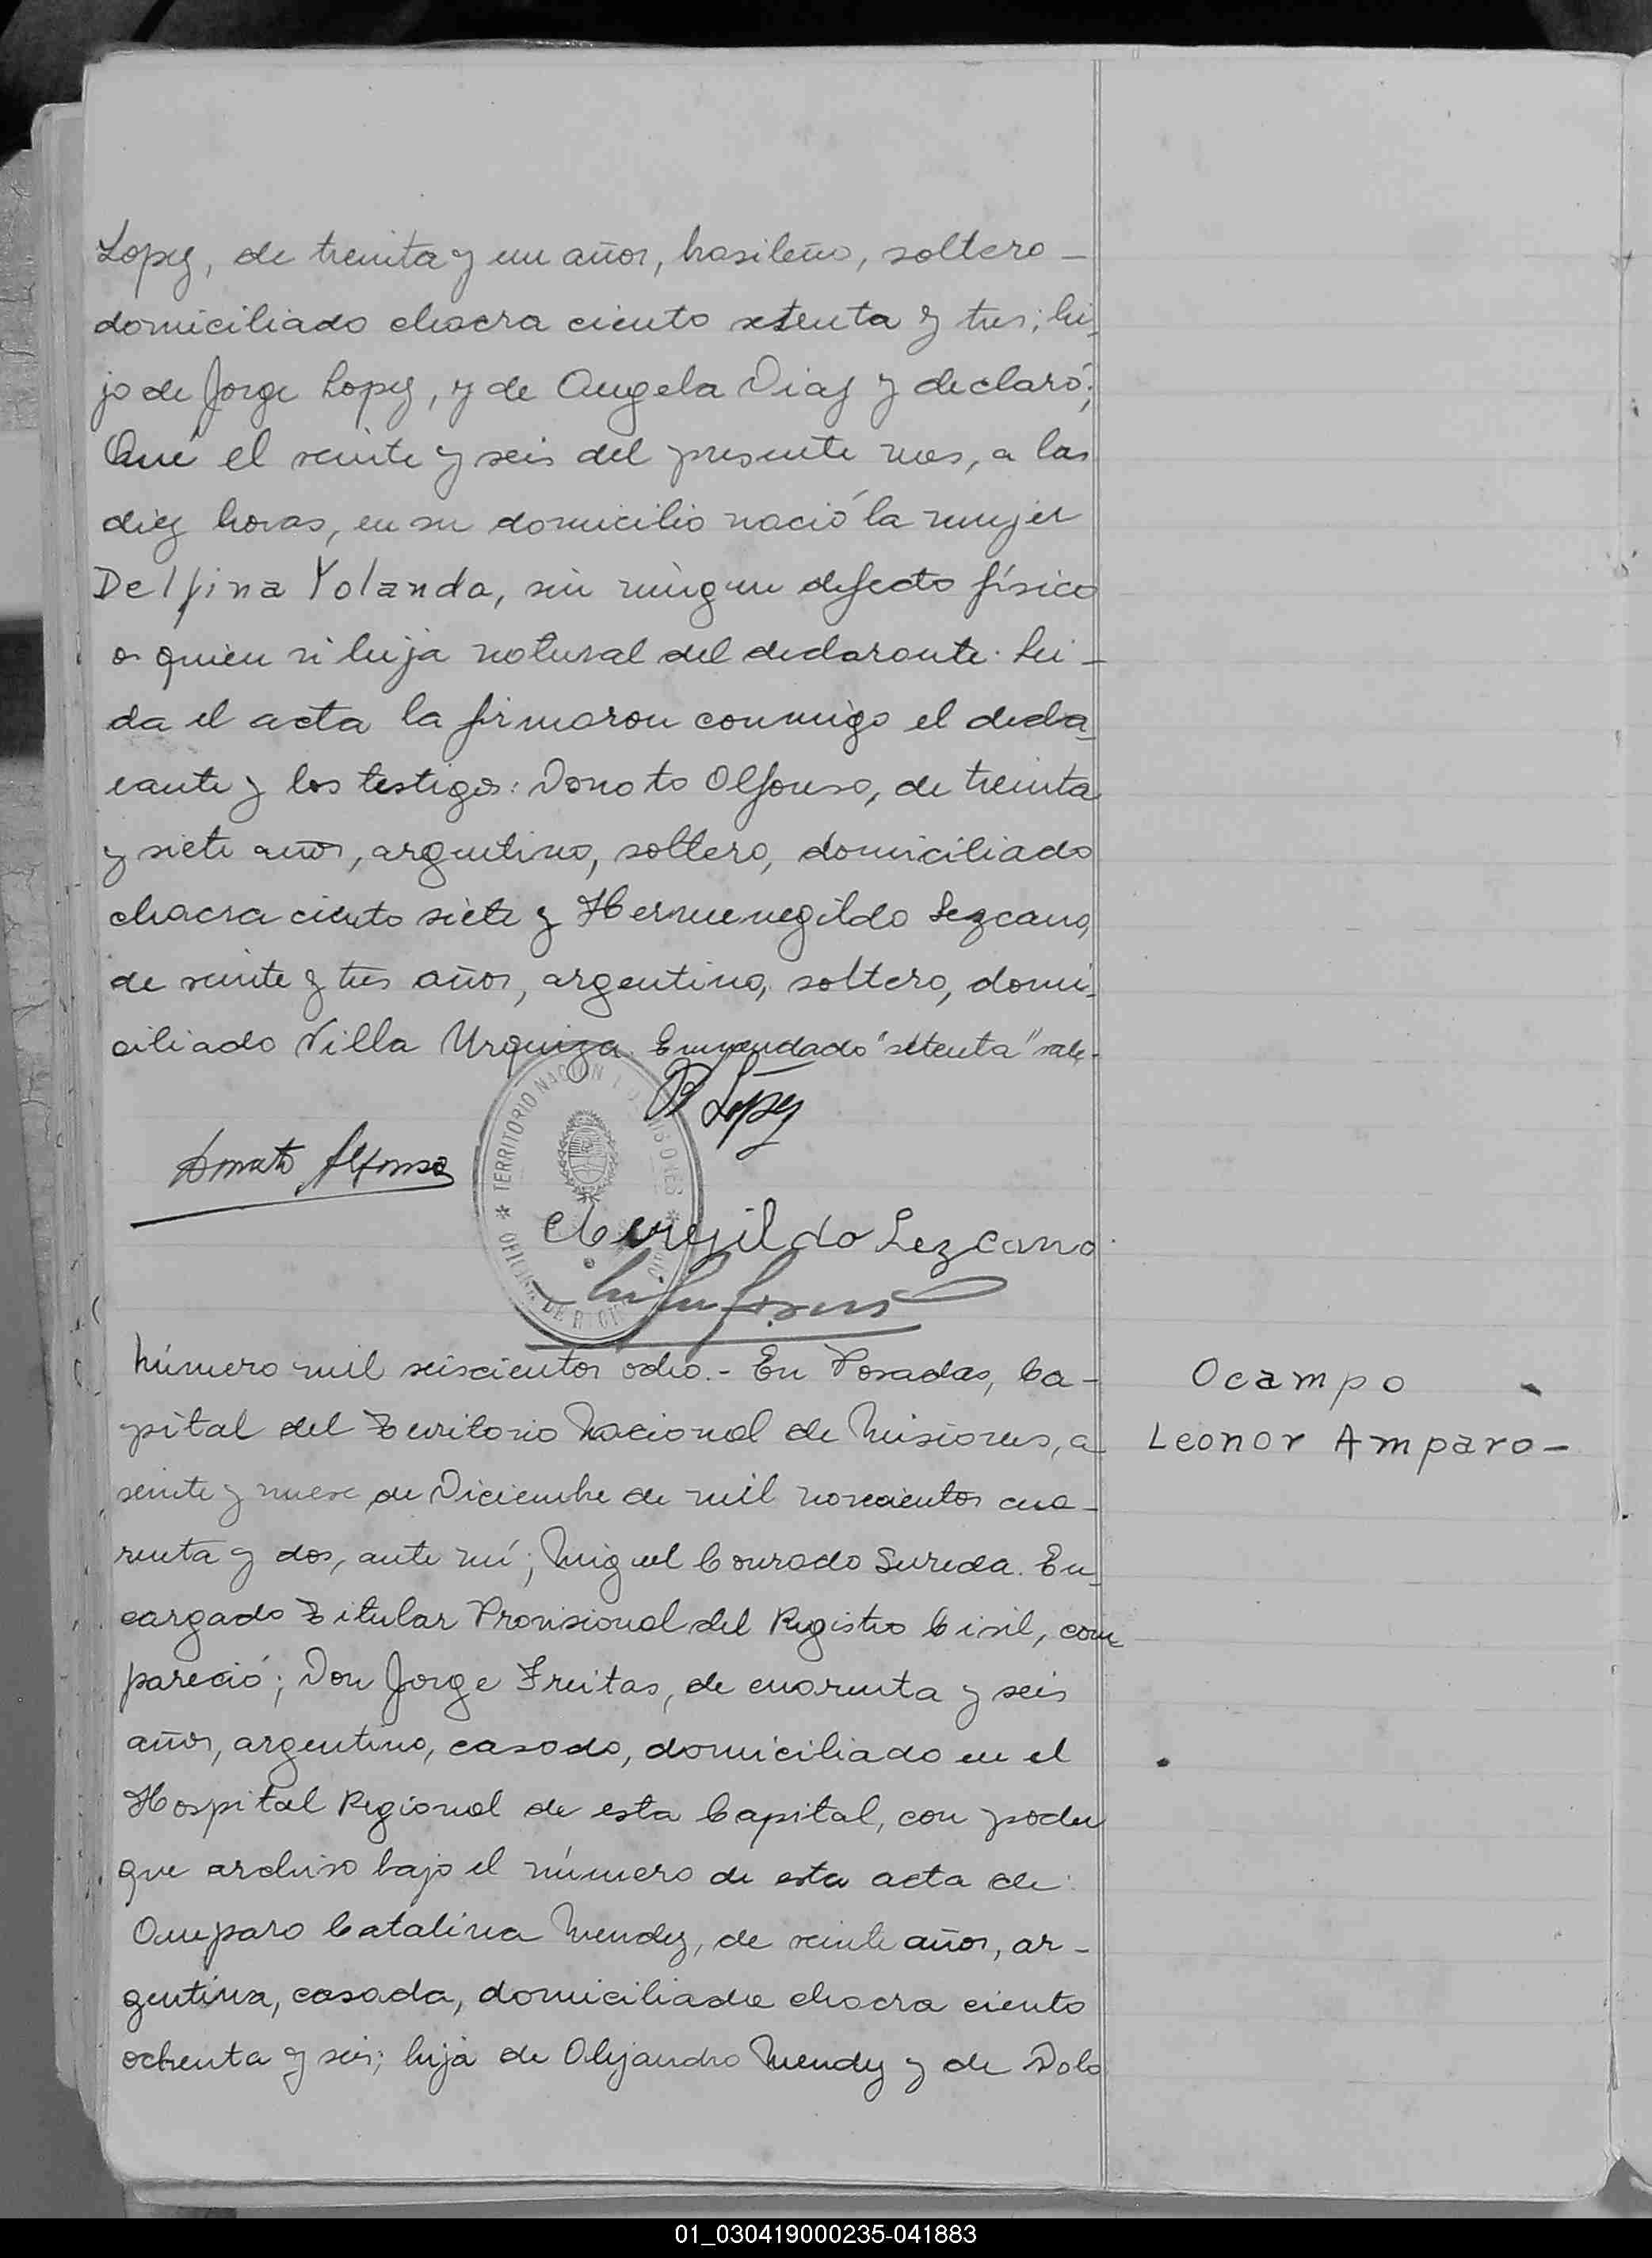 Lopez, de treinta y un años, brasileño, soltero -
domiciliado chacra ciento setenta y tres; hi-
jo de Jorge Lopez, y de Angela Diaz y declaró;
Que el veinte y seis del presente mes, a las
diez horas, en su domicilio nació la mujer
Delfina Yolanda, sin ningun defecto físico
a quien vi hija natural del declarante. Lei -
da el acta la firmaron conmigo el decla-
rante y los testigos: Donato Alfonso, de treinta
y siete años, argentino, soltero, domiciliado
chacra ciento siete y Hermenegildo Lezcano,
de veinte y tres años, argentino, soltero, domi-
ciliado Villa Urquiza. Enmendado "setenta" vale.
Lopez
Donato Alfonso
TERRITORIO NACIONAL DE MISIONES
Lezcano
Número mil seiscientos ocho. - En Posadas, Ca -
pital del Territorio Nacional de Misiones, a
veinte y nueve de Diciembre de mil novecientos cua -
renta y dos, ante mí; Miguel Conrado Sureda. En-
cargado Titular Provisional del Registro Civil, com-
pareció; Don Jorge Freitas, de cuarenta y seis
años, argentino, casado, domiciliado en el
Hospital Regional de esta Capital, con poder
que archivo bajo el número de esta acta de:
Amparo Catalina Mendez, de veinte años, ar -
gentina, casada, domiciliada chacra ciento
ochenta y seis; hija de Alejandro Mendez y de Dolo
Ocampo
Leonor Amparo -
01_030419000235-041883